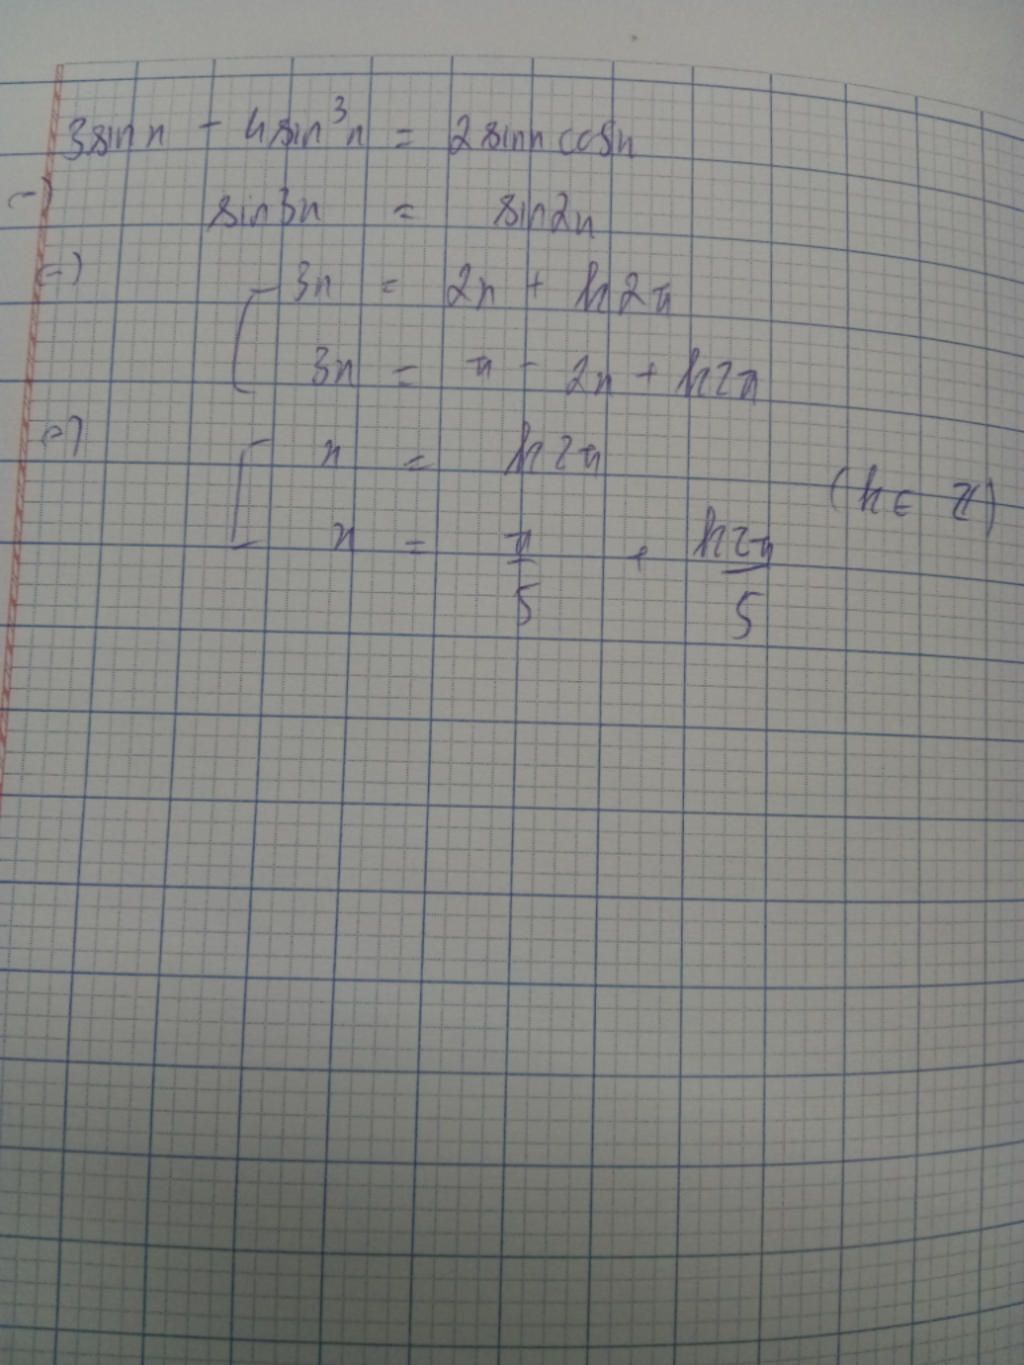 3sinx - 4sin³x = 2sinx cosx
(=) sin3x = sin2x
(=) [ 3x = 2x + k2π
3x = π - 2x + k2π
(=) [ x = k2π (k ∈ Z)
x = π/5 + k2π/5